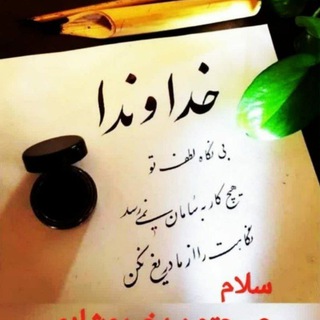 خداوندا
بی نگاه لطف تو
هیچ کار به سامان نمی رسد
نگاهت را از ما دریغ مکن
سلام